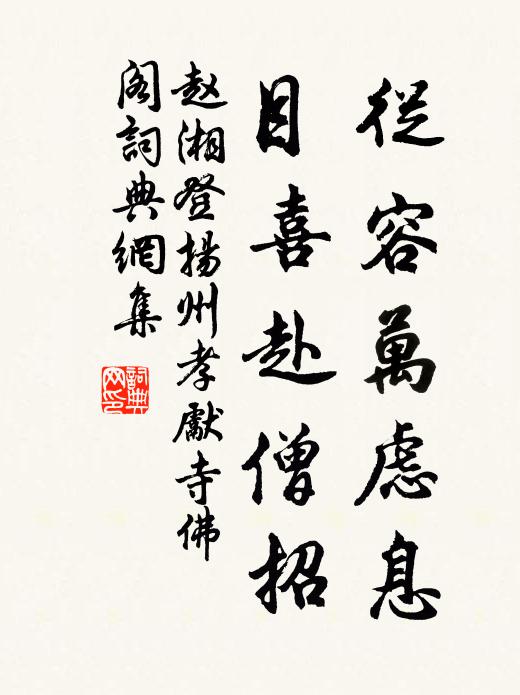 從容萬慮息
目喜赴僧招
赵湘登揚州孝獻寺佛
閣詞典網集
詞典
网印